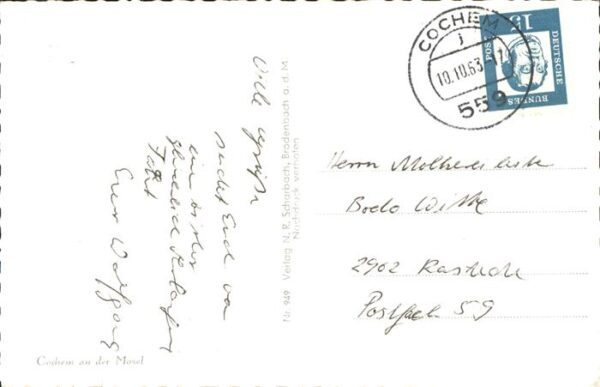 Viele Grüße
sendet Euch von
einer
Fahrt
Euer Wolfgang
Cochem an der Mosel
Nr. 949 Verlag N. R. Scharbach, Brodenbach a. d. M.
Nachdruck verboten
COCHEM
j
10.10.63-17
559
15
DEUTSCHE
BUNDES
POST
Herrn
Bodo Witte
2902 Rastede
Postfach 59